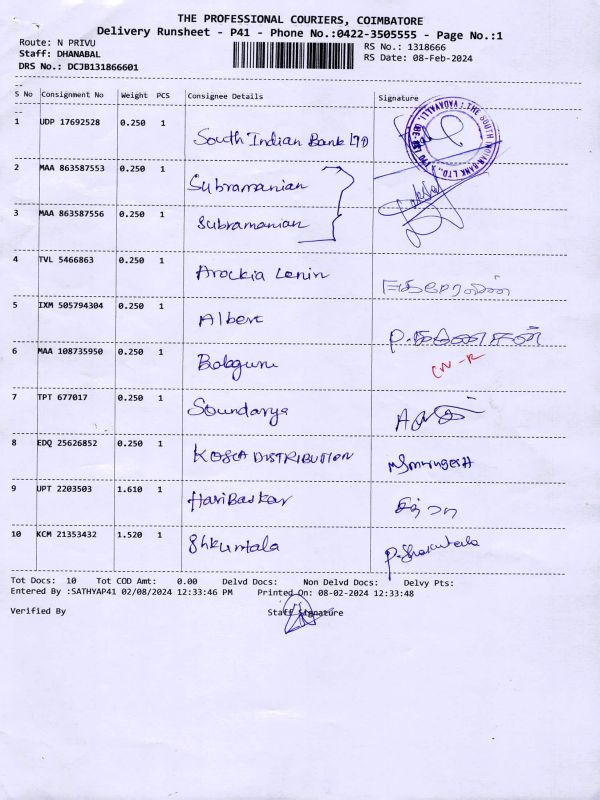 THE PROFESSIONAL COURIERS, COIMBATORE
Delivery Runsheet - P41 - Phone No.:0422-3505555 - Page No.:1
Route: N PRIVU
RS No.: 1318666
Staff: DHANABAL
RS Date: 08-Feb-2024
DRS No.: DCJB131866601
S No Consignment No Weight PCS Consignee Details Signature
1 UDP 17692528 0.250 1 South Indian Bank LTD
2 MAA 863587553 0.250 1 Subramanian
3 MAA 863587556 0.250 1 Subramanian
4 TVL 5466863 0.250 1 Arockia Lenin
5 IXM 505794304 0.250 1 Albert
6 MAA 108735950 0.250 1 Balaguru
7 TPT 677017 0.250 1 Soundarya
8 EDQ 25626852 0.250 1 KOSCA DISTRIBUTION
9 UPT 2203503 1.610 1 Hari Baskar
10 KCM 21353432 1.520 1 Shkuntala P. Shakuntala
Tot Docs: 10 Tot COD Amt: 0.00 Delvd Docs: Non Delvd Docs: Delvy Pts:
Entered By :SATHYAP41 02/08/2024 12:33:46 PM Printed On: 08-02-2024 12:33:48
Verified By Staff Signature